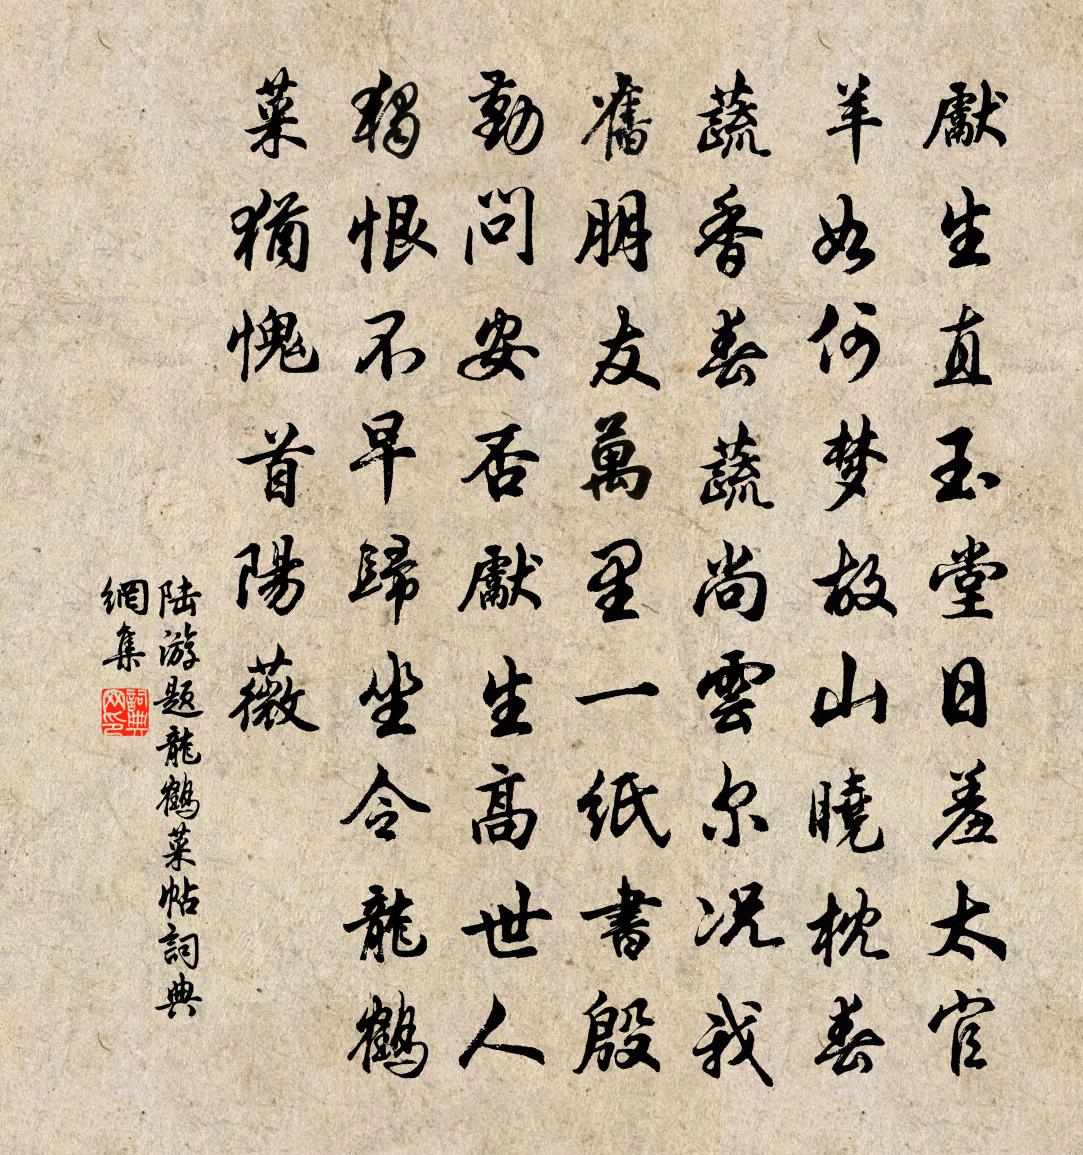 獻生直玉堂日羞太官
羊如何梦故山曉枕春
蔬香春蔬尚雲尔况我
舊朋友萬里一紙書殷
勤問安否獻生高世人
獨恨不早歸坐令龍鶴
菜猶愧首陽薇
陆游题龍鶴菜帖詞典
網集
詞典
网印